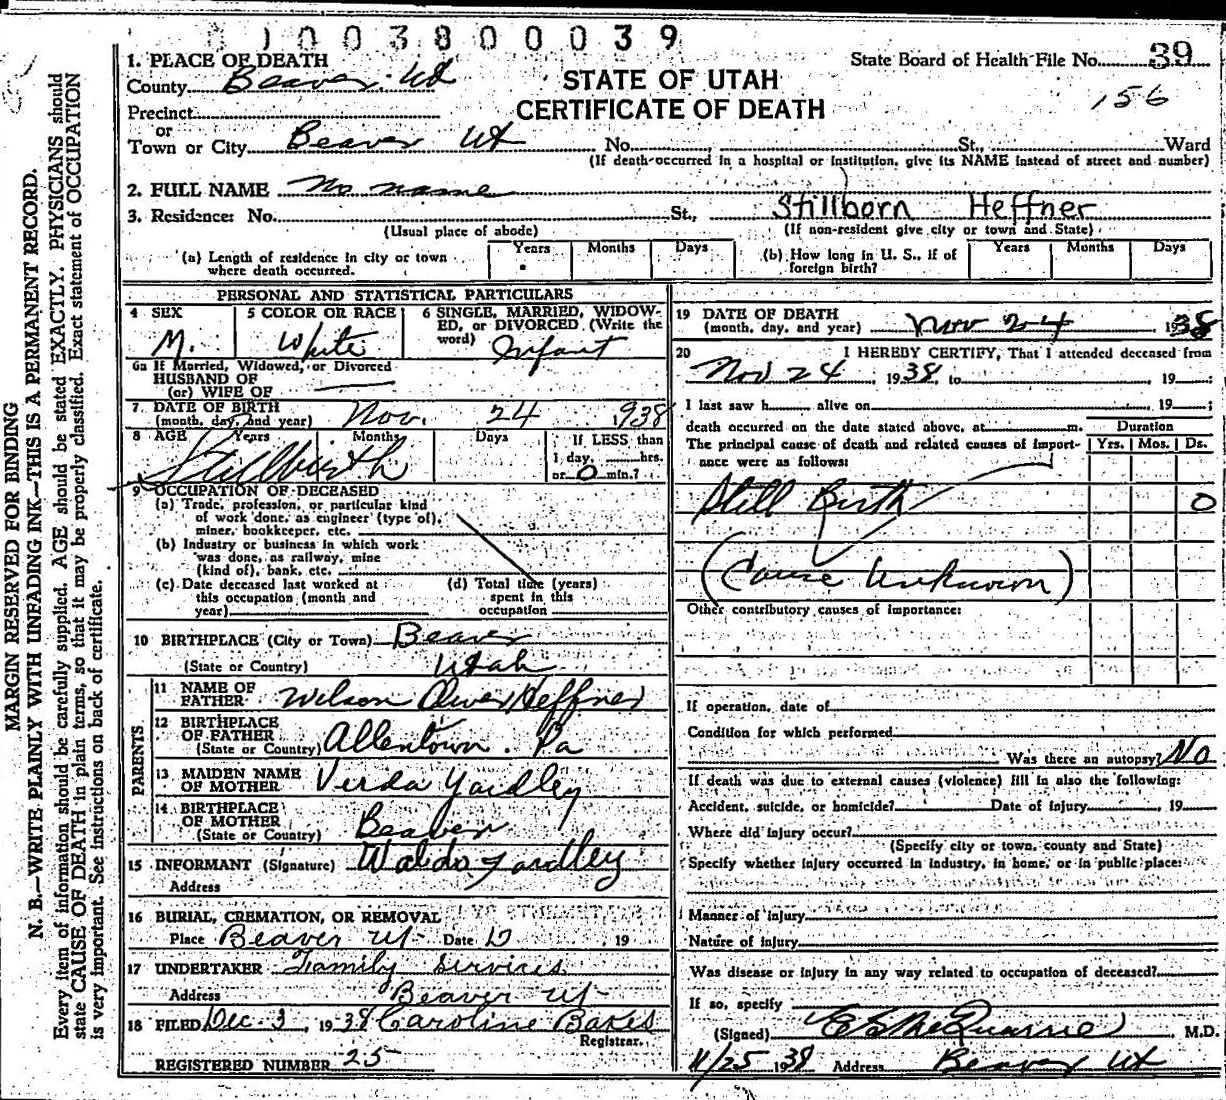 1 0 0 3 8 0 0 0 3 9
1. PLACE OF DEATH
County Beaver. Ut
Precinct
or
Town or City Beaver Ut No. St., Ward
STATE OF UTAH
CERTIFICATE OF DEATH
State Board of Health File No. 39
156
(If death occurred in a hospital or institution, give its NAME instead of street and number)
2. FULL NAME No name
Stillborn Heffner
3. Residence: No. St.,
(Usual place of abode) (If non-resident give city or town and State)
(a) Length of residence in city or town where death occurred. Years Months Days
(b) How long in U. S., if of foreign birth? Years Months Days
PERSONAL AND STATISTICAL PARTICULARS
4 SEX M.
5 COLOR OR RACE White
6 SINGLE, MARRIED, WIDOWED, or DIVORCED (Write the word) Infant
6a If Married, Widowed, or Divorced
HUSBAND OF
(or) WIFE OF
7. DATE OF BIRTH
(month, day, and year) Nov. 24 1938
8 AGE Years Months Days If LESS than
1 day, hrs.
or 0 min.?
Stillbirth
9 OCCUPATION OF DECEASED
(a) Trade, profession, or particular kind
of work done, as engineer (type of),
miner, bookkeeper, etc.
(b) Industry or business in which work
was done, as railway, mine
(kind of), bank, etc.
(c) Date deceased last worked at
this occupation (month and
year)
(d) Total time (years)
spent in this
occupation
10 BIRTHPLACE (City or Town) Beaver
(State or Country) Utah
PARENTS
11 NAME OF
FATHER Wilson Oliver Heffner
12 BIRTHPLACE
OF FATHER
(State or Country) Allentown. Pa
13 MAIDEN NAME
OF MOTHER Verda Yardley
14 BIRTHPLACE
OF MOTHER
(State or Country) Beaver
15 INFORMANT (Signature) Waldo Yardley
Address
16 BURIAL, CREMATION, OR REMOVAL
Place Beaver Ut Date 19
17 UNDERTAKER Family Services
Address Beaver Ut
18 FILED Dec. 3, 1938 Caroline Bakes
Registrar.
REGISTERED NUMBER 25
19 DATE OF DEATH
(month, day, and year) Nov 24 1938
20 I HEREBY CERTIFY, That I attended deceased from
Nov 24, 1938, to , 19 ;
I last saw h alive on , 19 ;
death occurred on the date stated above, at m.
Duration
The principal cause of death and related causes of importance were as follows: Yrs. Mos. Ds.
Still Birth 0
(Cause Unknown)
Other contributory causes of importance:
If operation, date of
Condition for which performed
Was there an autopsy? No
If death was due to external causes (violence) fill in also the following:
Accident, suicide, or homicide? Date of injury , 19
Where did injury occur?
(Specify city or town, county and State)
Specify whether injury occurred in industry, in home, or in public place:
Manner of injury
Nature of injury
Was disease or injury in any way related to occupation of deceased?
If so, specify
(Signed) E S McQuarrie M.D.
11/25 1938 Address Beaver Ut
MARGIN RESERVED FOR BINDING
N. B.—WRITE PLAINLY WITH UNFADING INK—THIS IS A PERMANENT RECORD.
Every item of information should be carefully supplied. AGE should be stated EXACTLY. PHYSICIANS should
state CAUSE OF DEATH in plain terms, so that it may be properly classified. Exact statement of OCCUPATION
is very important. See instructions on back of certificate.